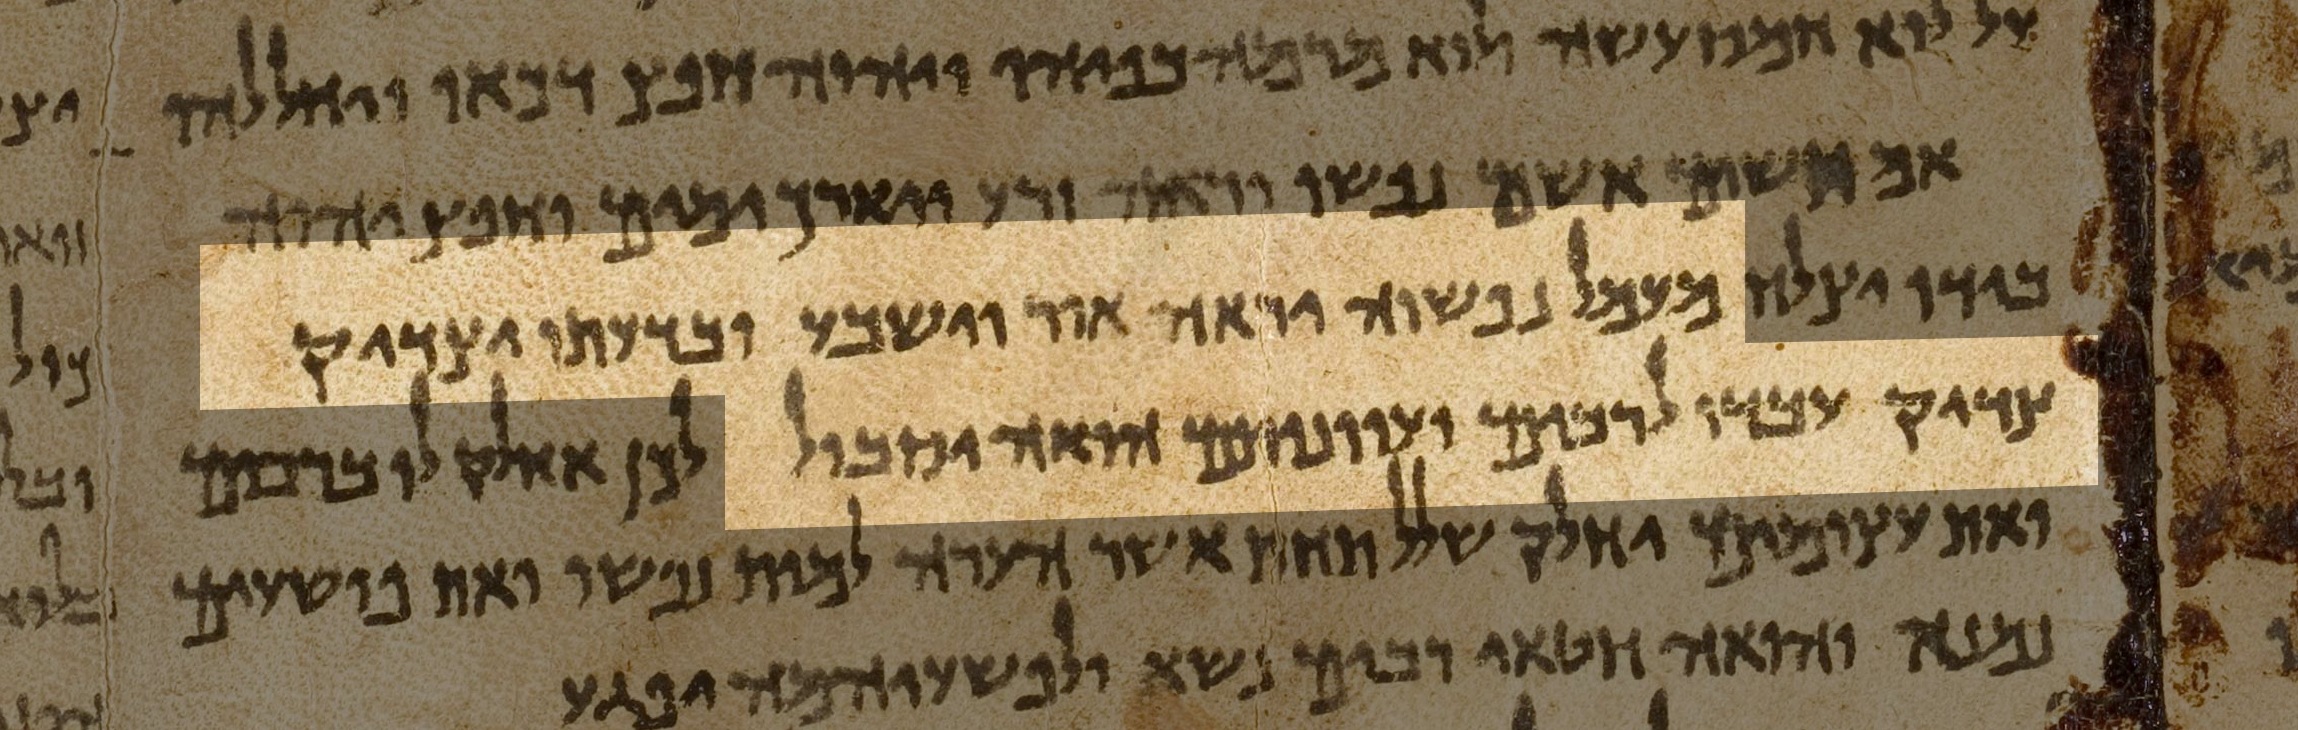 על לוא חמס עשה ולוא מרמה בפיהו ויהוה חפץ דכאו ויחללהו
אם תשים אשם נפשו יראה זרע ויארך ימים וחפץ יהוה
בידו יצלח מעמל נפשוה יראה אור וישבע ובדעתו יצדיק
צדיק עבדו לרבים ועוונותם הואה יסבול לכן אחלק לו ברבים
ואת עצומים יחלק שלל תחת אשר הערה למות נפשו ואת פושעים
נמנה והואה חטאי רבים נשא ולפשעיהמה יפגע